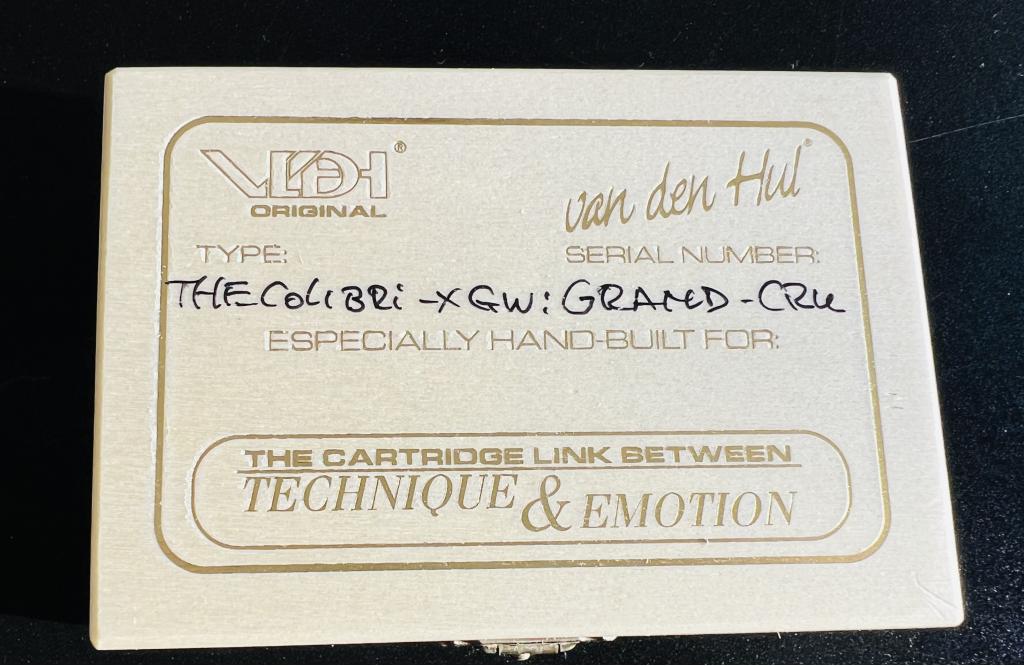 VDH®
ORIGINAL
van den Hul®
TYPE: SERIAL NUMBER:
THE COLIBRi-XGW: GRAND-CRU
ESPECIALLY HAND-BUILT FOR:
THE CARTRIDGE LINK BETWEEN
TECHNIQUE & EMOTION